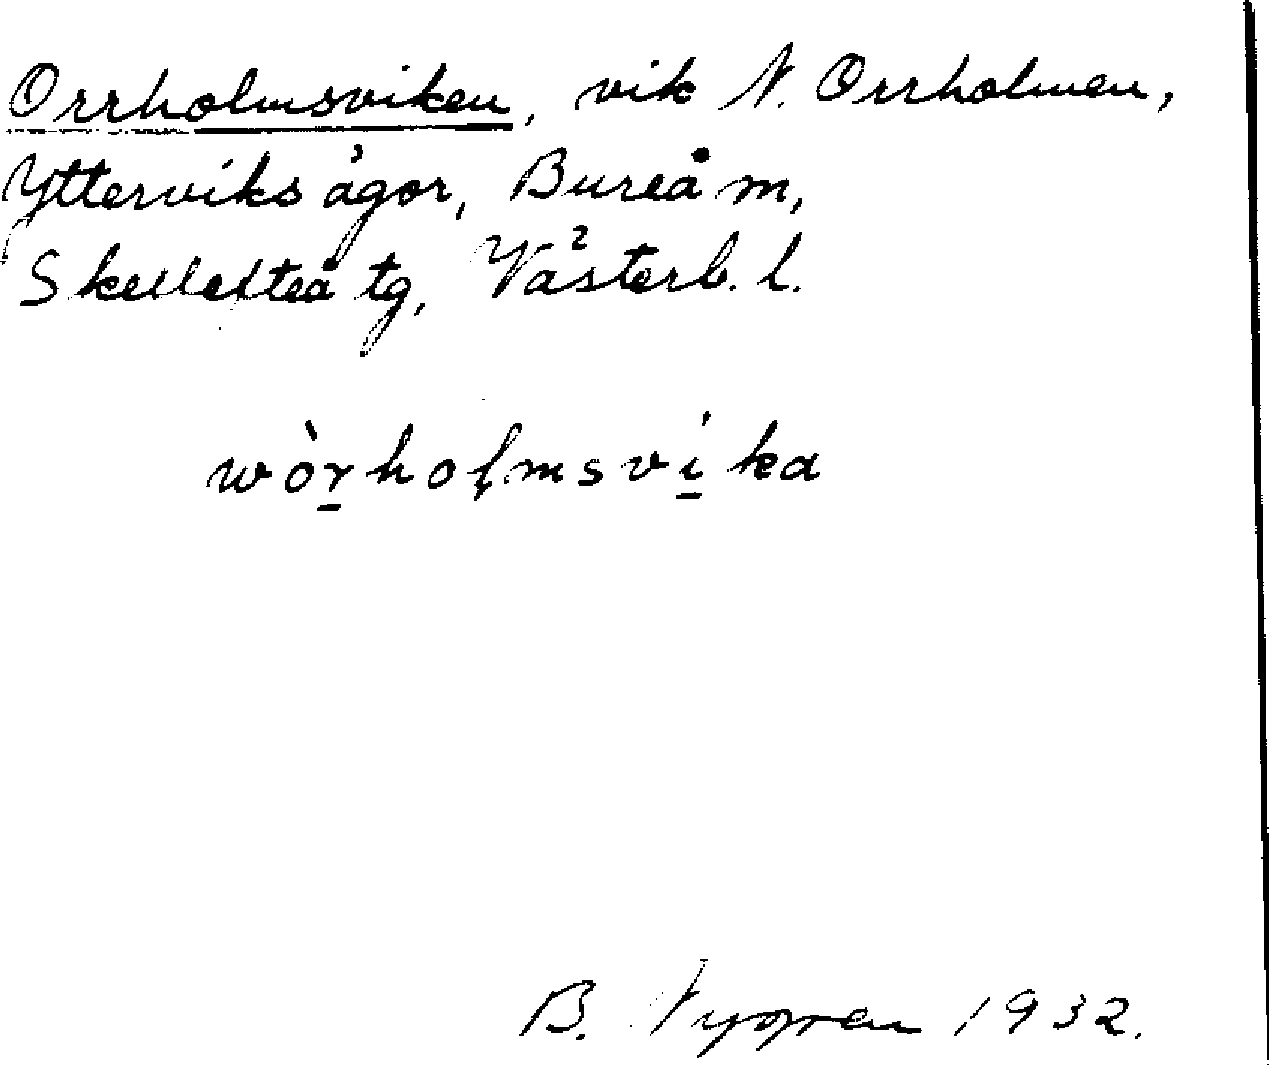 Orrholmsviken, vik N. Orrholmen,
Ytterviks ägor, Bureå m,
Skellefteå tg, Västerb. l.
wòr̲hoļmsví̲ka
B. Nygren 1932.